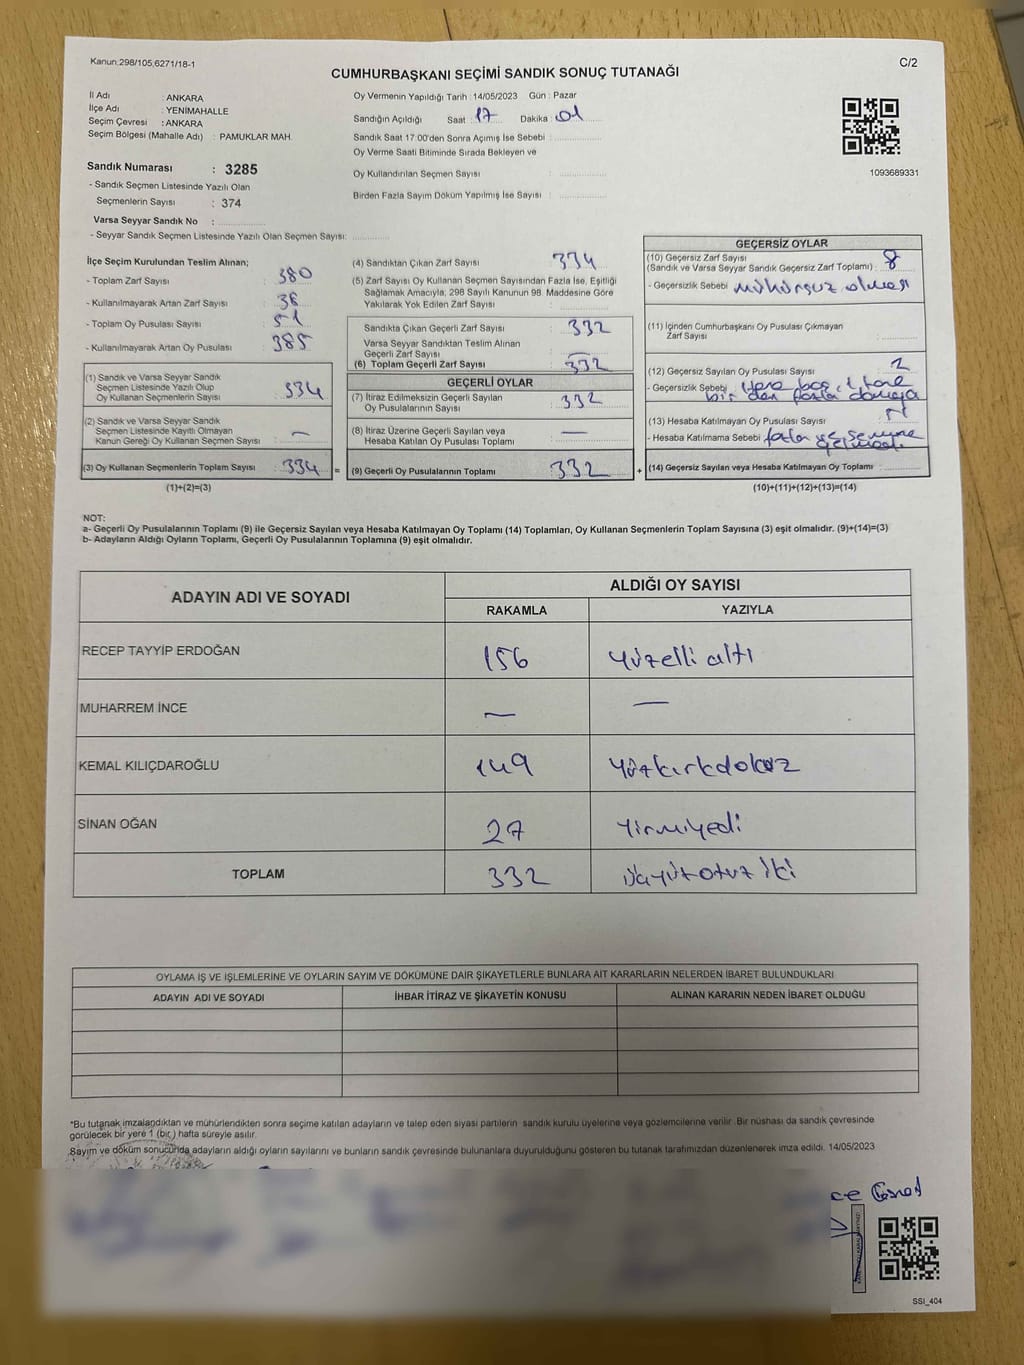 Kanun:298/105,6271/18-1
C/2
CUMHURBAŞKANI SEÇİMİ SANDIK SONUÇ TUTANAĞI
İl Adı : ANKARA
İlçe Adı : YENİMAHALLE
Seçim Çevresi : ANKARA
Seçim Bölgesi (Mahalle Adı) : PAMUKLAR MAH.
Sandık Numarası : 3285
- Sandık Seçmen Listesinde Yazılı Olan
Seçmenlerin Sayısı : 374
Varsa Seyyar Sandık No :
- Seyyar Sandık Seçmen Listesinde Yazılı Olan Seçmen Sayısı:
Oy Vermenin Yapıldığı Tarih : 14/05/2023 Gün : Pazar
Sandığın Açıldığı Saat : 17 Dakika : 01
Sandık Saat 17:00'den Sonra Açımış İse Sebebi :
Oy Verme Saati Bitiminde Sırada Bekleyen ve
Oy Kullandırılan Seçmen Sayısı :
Birden Fazla Sayım Döküm Yapılmış İse Sayısı :
1093689331
İlçe Seçim Kurulundan Teslim Alınan;
- Toplam Zarf Sayısı : 380
- Kullanılmayarak Artan Zarf Sayısı : 38
- Toplam Oy Pusulası Sayısı : 51
- Kullanılmayarak Artan Oy Pusulası : 385
(1) Sandık ve Varsa Seyyar Sandık
Seçmen Listesinde Yazılı Olup
Oy Kullanan Seçmenlerin Sayısı : 334
(2) Sandık ve Varsa Seyyar Sandık
Seçmen Listesinde Kayıtlı Olmayan
Kanun Gereği Oy Kullanan Seçmen Sayısı : —
(3) Oy Kullanan Seçmenlerin Toplam Sayısı : 334 =
(1)+(2)=(3)
(4) Sandıktan Çıkan Zarf Sayısı : 334
(5) Zarf Sayısı Oy Kullanan Seçmen Sayısından Fazla İse, Eşitliği
Sağlamak Amacıyla, 298 Sayılı Kanunun 98. Maddesine Göre
Yakılarak Yok Edilen Zarf Sayısı :
Sandıkta Çıkan Geçerli Zarf Sayısı : 332
Varsa Seyyar Sandıktan Teslim Alınan
Geçerli Zarf Sayısı : —
(6) Toplam Geçerli Zarf Sayısı : 332
GEÇERLİ OYLAR
(7) İtiraz Edilmeksizin Geçerli Sayılan
Oy Pusulalarının Sayısı : 332
(8) İtiraz Üzerine Geçerli Sayılan veya
Hesaba Katılan Oy Pusulası Toplamı : —
(9) Geçerli Oy Pusulalarının Toplamı : 332 +
GEÇERSİZ OYLAR
(10) Geçersiz Zarf Sayısı
(Sandık ve Varsa Seyyar Sandık Geçersiz Zarf Toplamı) : 8
- Geçersizlik Sebebi : mühürsüz olması
(11) İçinden Cumhurbaşkanı Oy Pusulası Çıkmayan
Zarf Sayısı :
(12) Geçersiz Sayılan Oy Pusulası Sayısı : 2
- Geçersizlik Sebebi : boş, 1 tane
bir den fazla damga
(13) Hesaba Katılmayan Oy Pusulası Sayısı :
- Hesaba Katılmama Sebebi : fazla
(14) Geçersiz Sayılan veya Hesaba Katılmayan Oy Toplamı :
(10)+(11)+(12)+(13)=(14)
NOT:
a- Geçerli Oy Pusulalarının Toplamı (9) ile Geçersiz Sayılan veya Hesaba Katılmayan Oy Toplamı (14) Toplamları, Oy Kullanan Seçmenlerin Toplam Sayısına (3) eşit olmalıdır. (9)+(14)=(3)
b- Adayların Aldığı Oyların Toplamı, Geçerli Oy Pusulalarının Toplamına (9) eşit olmalıdır.
ADAYIN ADI VE SOYADI ALDIĞI OY SAYISI
RAKAMLA YAZIYLA
RECEP TAYYİP ERDOĞAN 156 yüzelli altı
MUHARREM İNCE — —
KEMAL KILIÇDAROĞLU 149 yüzkırkdokuz
SİNAN OĞAN 27 yirmiyedi
TOPLAM 332 üçyüzotuz iki
OYLAMA İŞ VE İŞLEMLERİNE VE OYLARIN SAYIM VE DÖKÜMÜNE DAİR ŞİKAYETLERLE BUNLARA AİT KARARLARIN NELERDEN İBARET BULUNDUKLARI
ADAYIN ADI VE SOYADI İHBAR İTİRAZ VE ŞİKAYETİN KONUSU ALINAN KARARIN NEDEN İBARET OLDUĞU
*Bu tutanak imzalandıktan ve mühürlendikten sonra seçime katılan adayların ve talep eden siyasi partilerin sandık kurulu üyelerine veya gözlemcilerine verilir. Bir nüshası da sandık çevresinde
görülecek bir yere 1 (bir) hafta süreyle asılır.
Sayım ve döküm sonucunda adayların aldığı oyların sayılarını ve bunların sandık çevresinde bulunanlara duyurulduğunu gösteren bu tutanak tarafımızdan düzenlenerek imza edildi. 14/05/2023
SSI_404